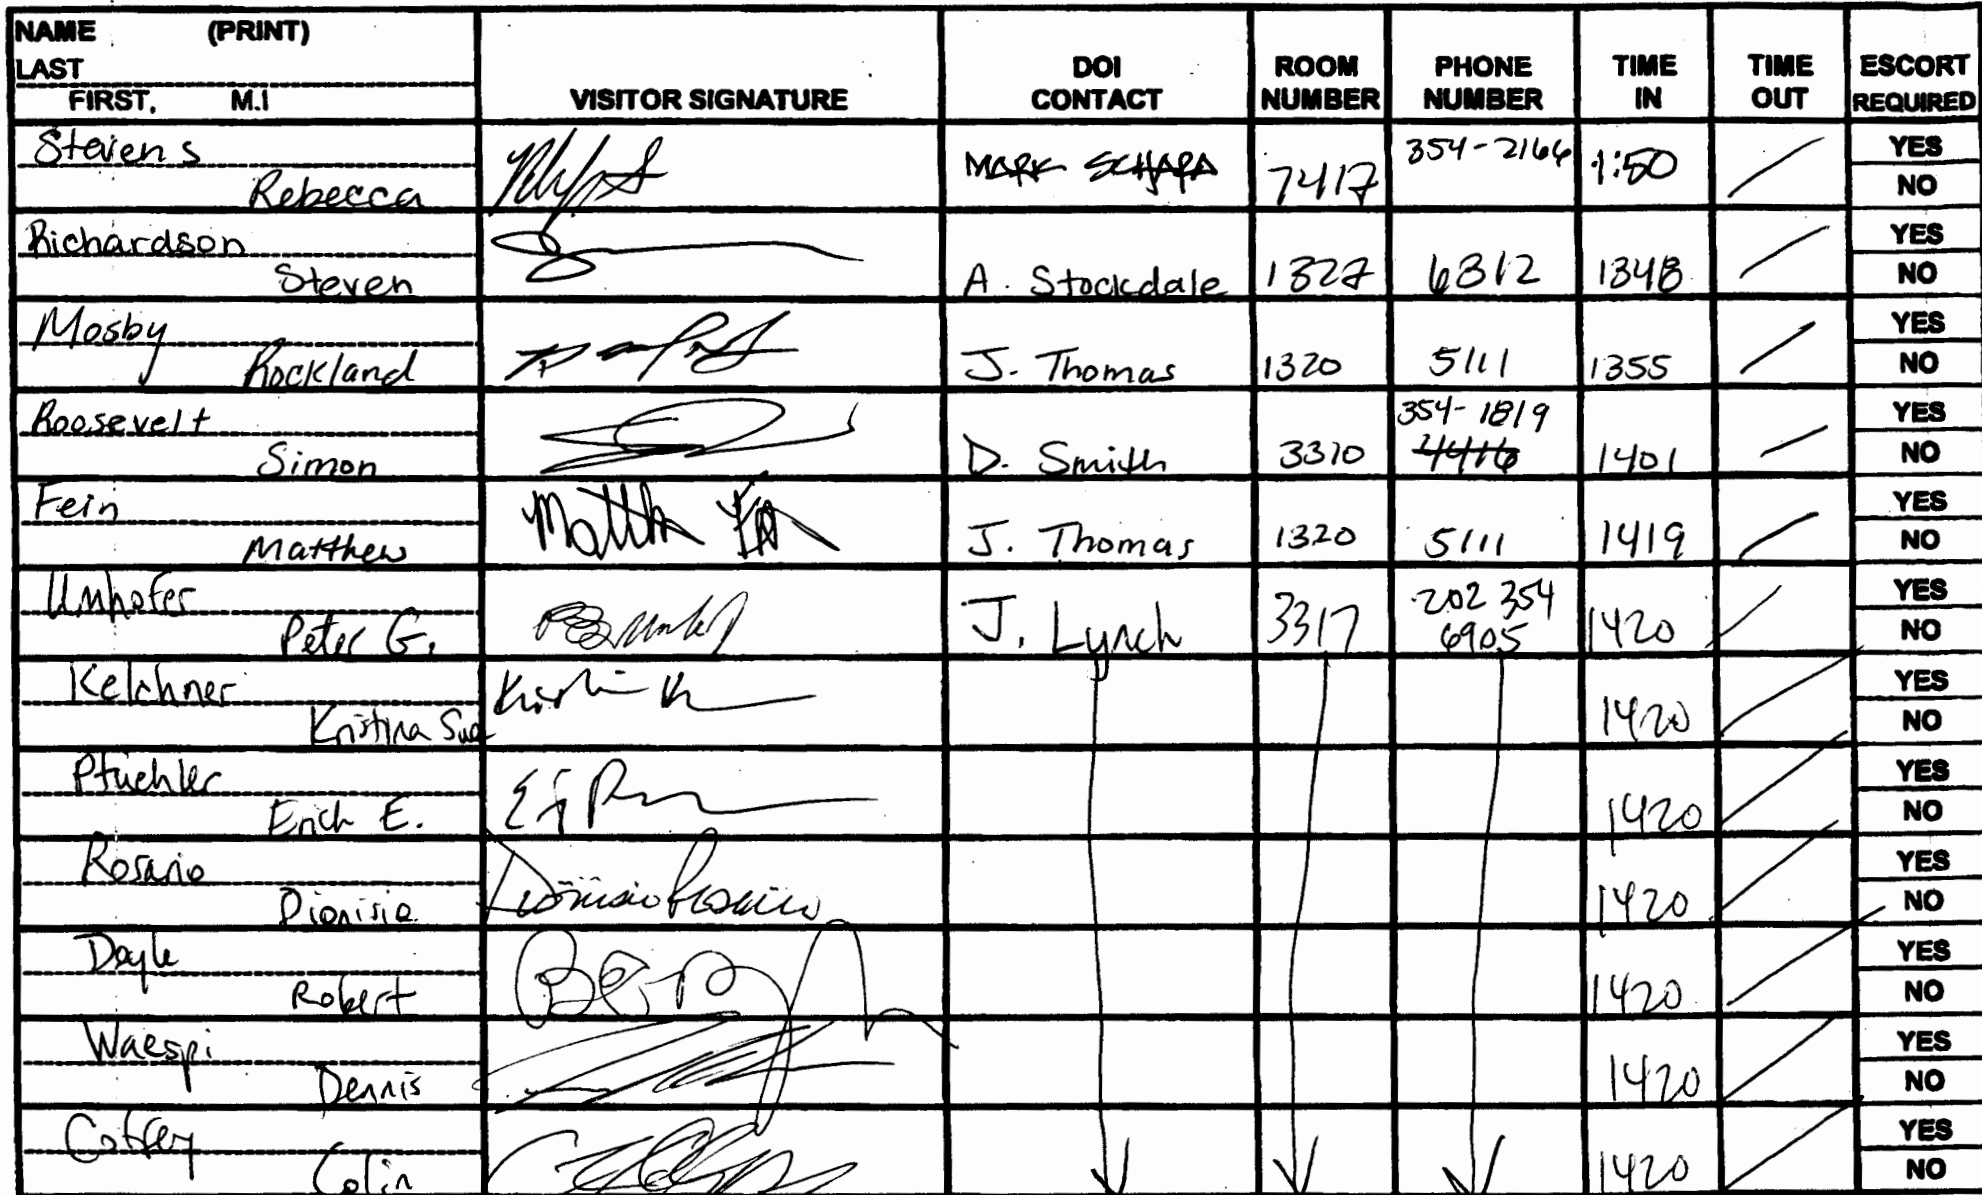 NAME (PRINT)
LAST
FIRST, M.I
VISITOR SIGNATURE
DOI
CONTACT
ROOM
NUMBER
PHONE
NUMBER
TIME
IN
TIME
OUT
ESCORT
REQUIRED
Stevens
Rebecca
MARK
7417
354-2166
1:50
YES
NO
Richardson
Steven
A. Stockdale
1327
6312
1348
YES
NO
Mosby
Rockland
J. Thomas
1320
5111
1355
YES
NO
Roosevelt
Simon
D. Smith
3310
354-1819
4416
1401
YES
NO
Fein
Matthew
Matth
J. Thomas
1320
5111
1419
YES
NO
Umhofer
Peter G.
J. Lynch
3317
202 354
6905
1420
YES
NO
Kelchner
Kristina Sue
1420
YES
NO
Pfuehler
Erich E.
1420
YES
NO
Rosario
Dionisio
Dionisio Rosario
1420
YES
NO
Doyle
Robert
1420
YES
NO
Waespi
Dennis
1420
YES
NO
Coffey
Colin
1420
YES
NO